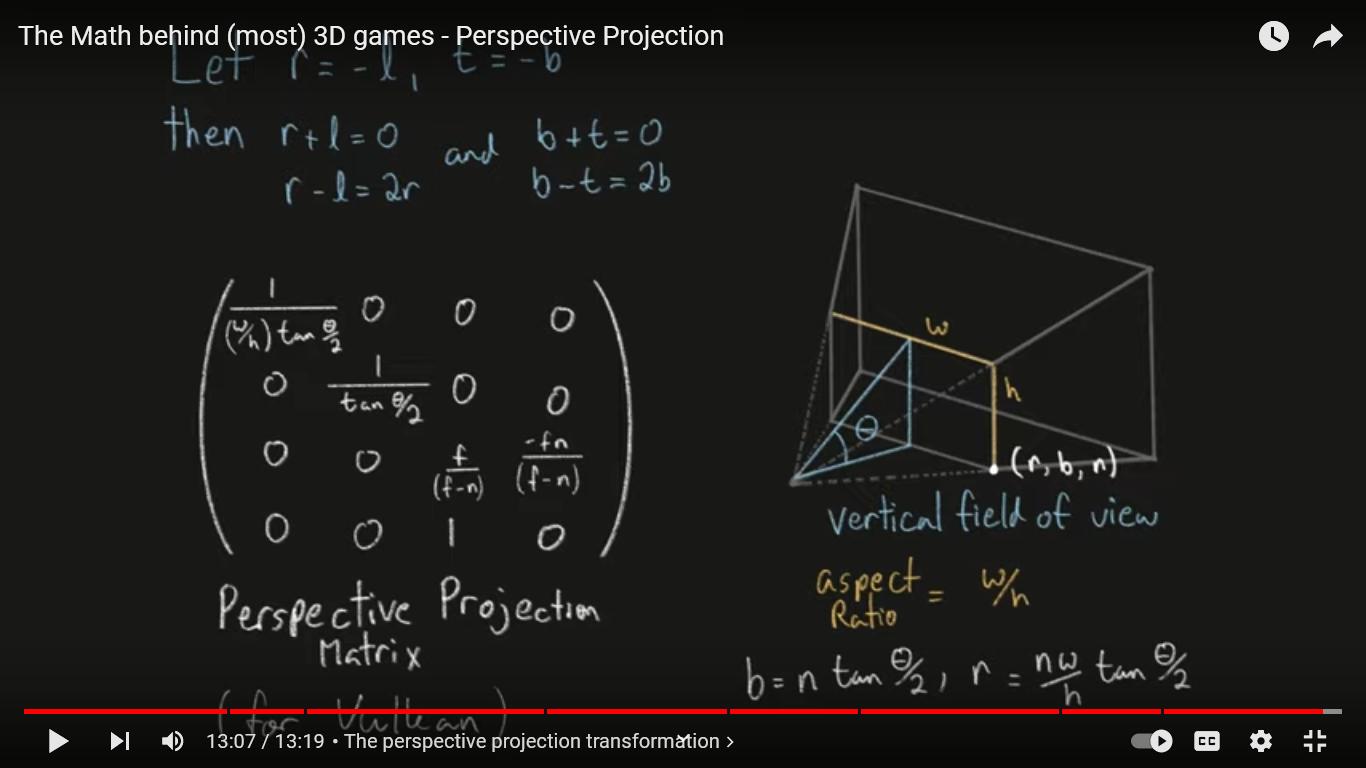 The Math behind (most) 3D games - Perspective Projection
Let r = -l, t = -b
then r+l=0 and b+t=0
r-l=2r b-t=2b
1/((w/h) tan θ/2) 0 0 0
0 1/(tan θ/2) 0 0
0 0 f/(f-n) -fn/(f-n)
0 0 1 0
Perspective Projection
Matrix
(for Vulkan)
w
h
θ
(r, b, n)
vertical field of view
aspect Ratio = w/h
b = n tan θ/2, r = nw/h tan θ/2
13:07 / 13:19 • The perspective projection transformation >
CC